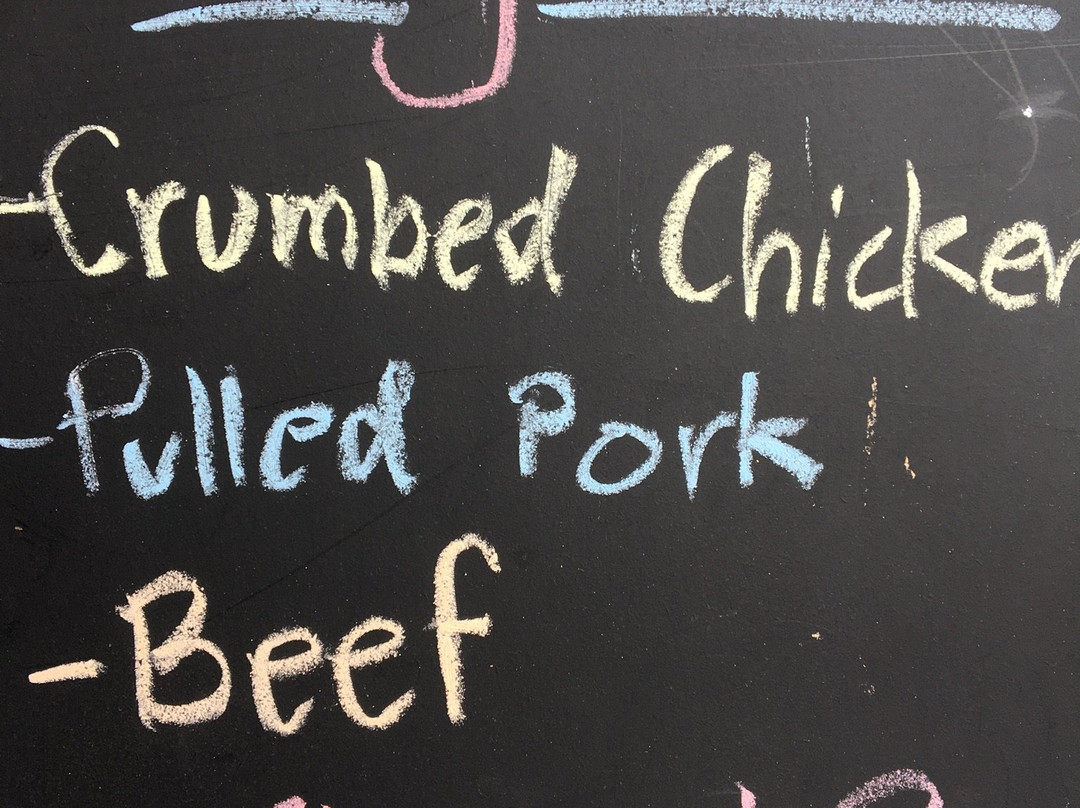 -Crumbed Chicken
-Pulled Pork
-Beef